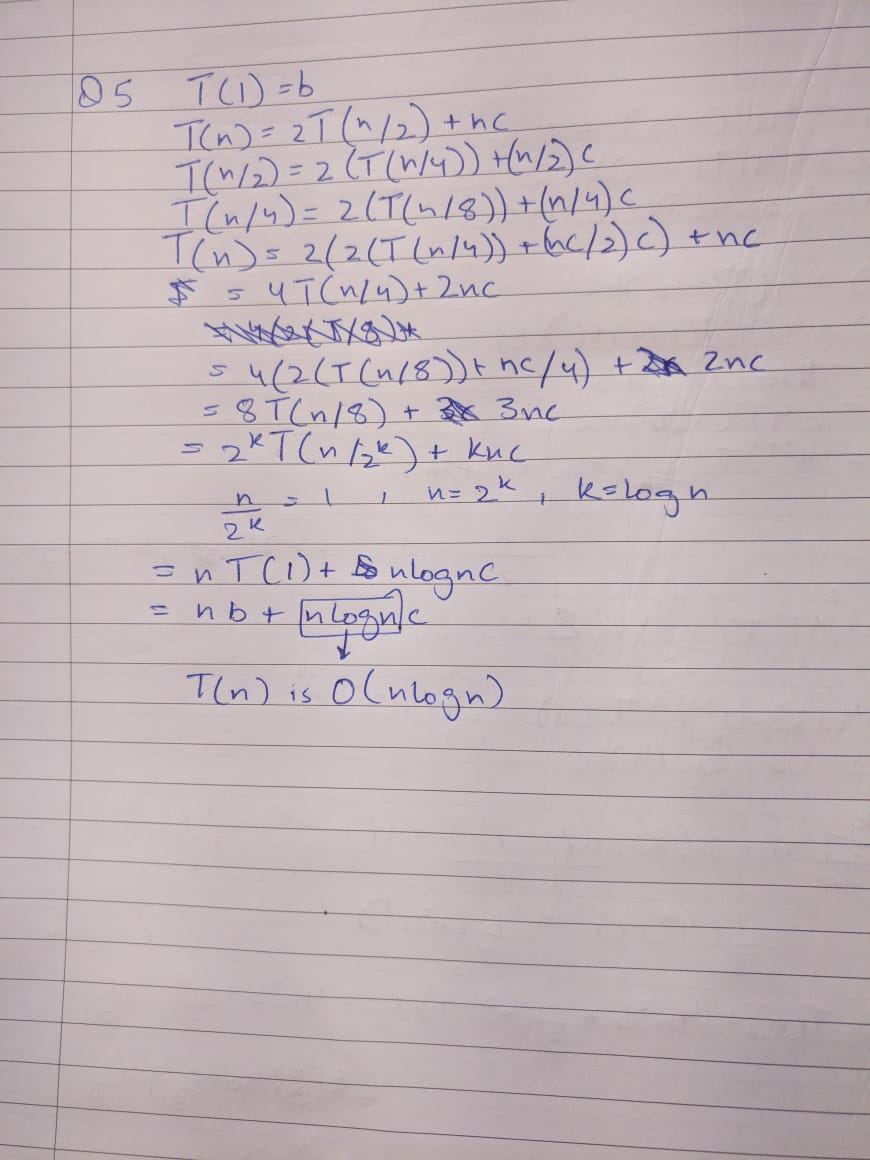 Q5 T(1) = b
T(n) = 2T(n/2) + nc
T(n/2) = 2(T(n/4)) + (n/2)c
T(n/4) = 2(T(n/8)) + (n/4)c
T(n) = 2(2(T(n/4)) + (nc/2)c) + nc
= 4T(n/4) + 2nc
= 4(2(T(n/8)) + nc/4) + 2nc
= 8T(n/8) + 3nc
= 2^k T(n/2^k) + knc
n/2^k = 1 , n = 2^k , k = log n
= n T(1) + nlognc
= nb + nlogn c
T(n) is O(nlogn)